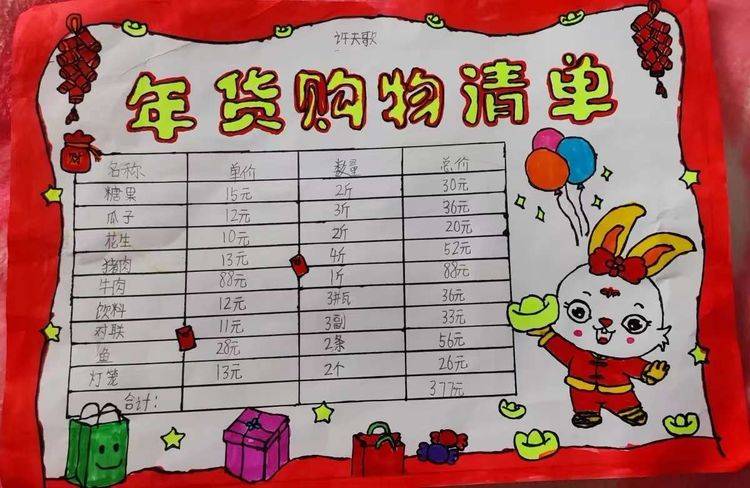 许天歌
年货购物清单
名称 单价 数量 总价
糖果 15元 2斤 30元
瓜子 12元 3斤 36元
花生 10元 2斤 20元
猪肉 13元 4斤 52元
牛肉 88元 1斤 88元
饮料 12元 3瓶 36元
对联 11元 3副 33元
鱼 28元 2条 56元
灯笼 13元 2个 26元
合计: 377元
财